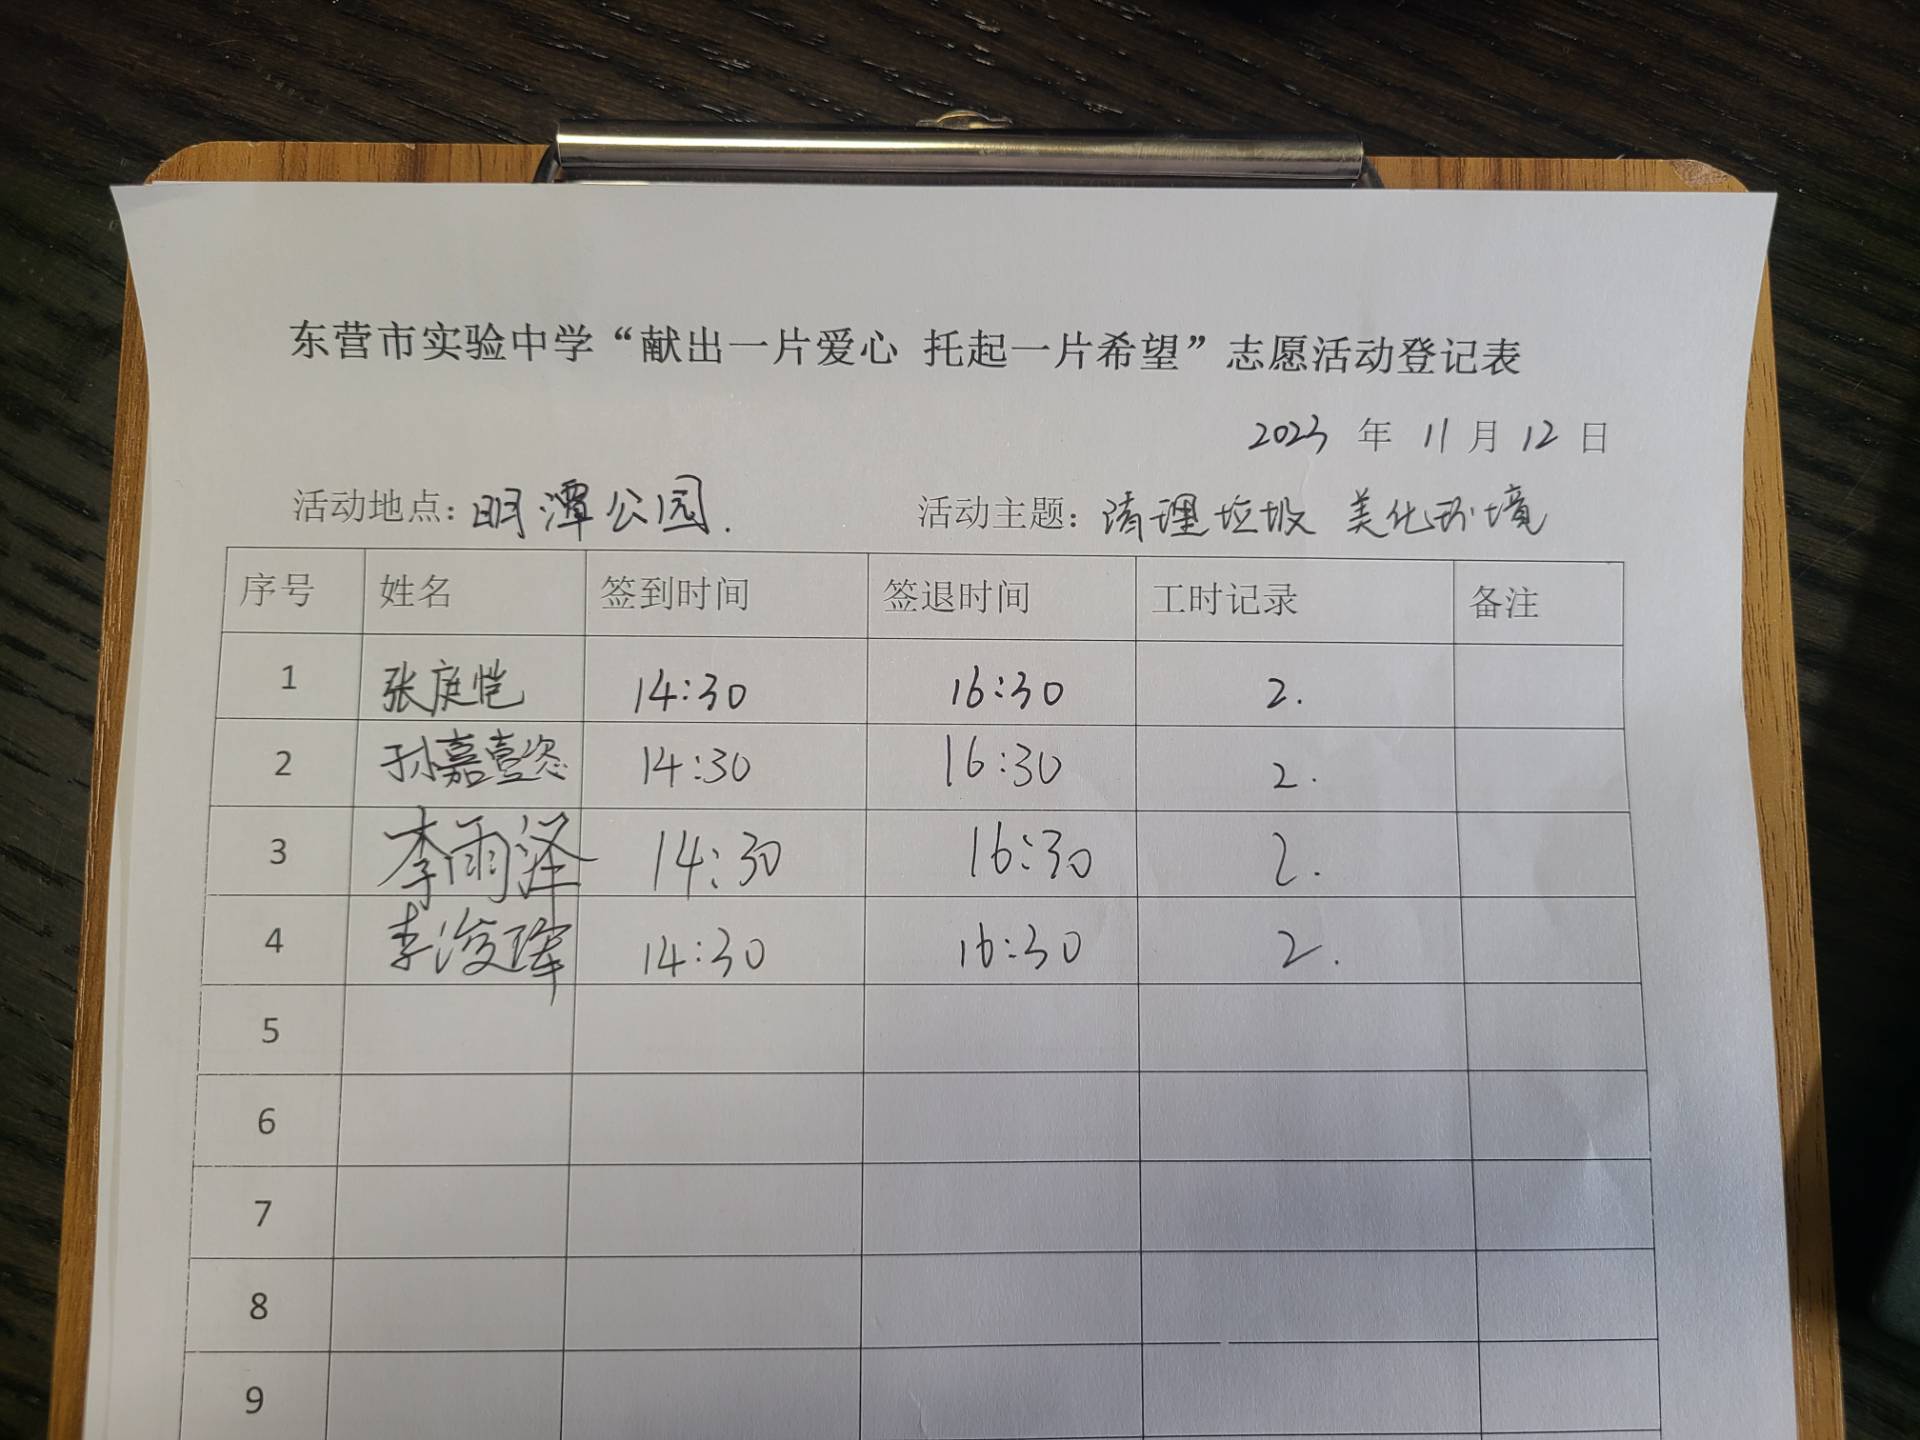 东营市实验中学“献出一片爱心 托起一片希望”志愿活动登记表
2023 年 11 月 12 日
活动地点：明潭公园. 活动主题：清理垃圾 美化环境
序号 姓名 签到时间 签退时间 工时记录 备注
1 张庭恺 14:30 16:30 2.
2 孙嘉壹恣 14:30 16:30 2.
3 李雨泽 14:30 16:30 2.
4 李浚珲 14:30 16:30 2.
5
6
7
8
9